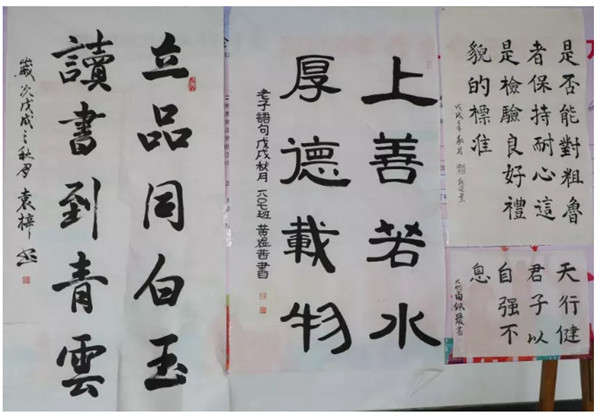 立品同白玉
讀書到青雲
歲次戊戌之秋月 袁梓
上善若水
厚德載物
老子語句戊戌秋月 一六〇七班 黃 茜書
是否能對粗魯
者保持耐心這
是檢驗良好禮
貌的標准
戊戌年秋月
天行健
君子以
自强不
息